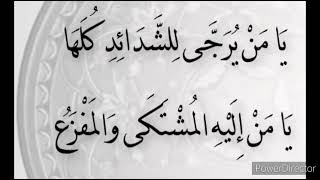 يَا مَنْ يُرَجَّى لِلشَّدَائِدِ كُلِّهَا
يَا مَنْ إِلَيْهِ الْمُشْتَكَى وَالْمَفْزَعُ
PowerDirector